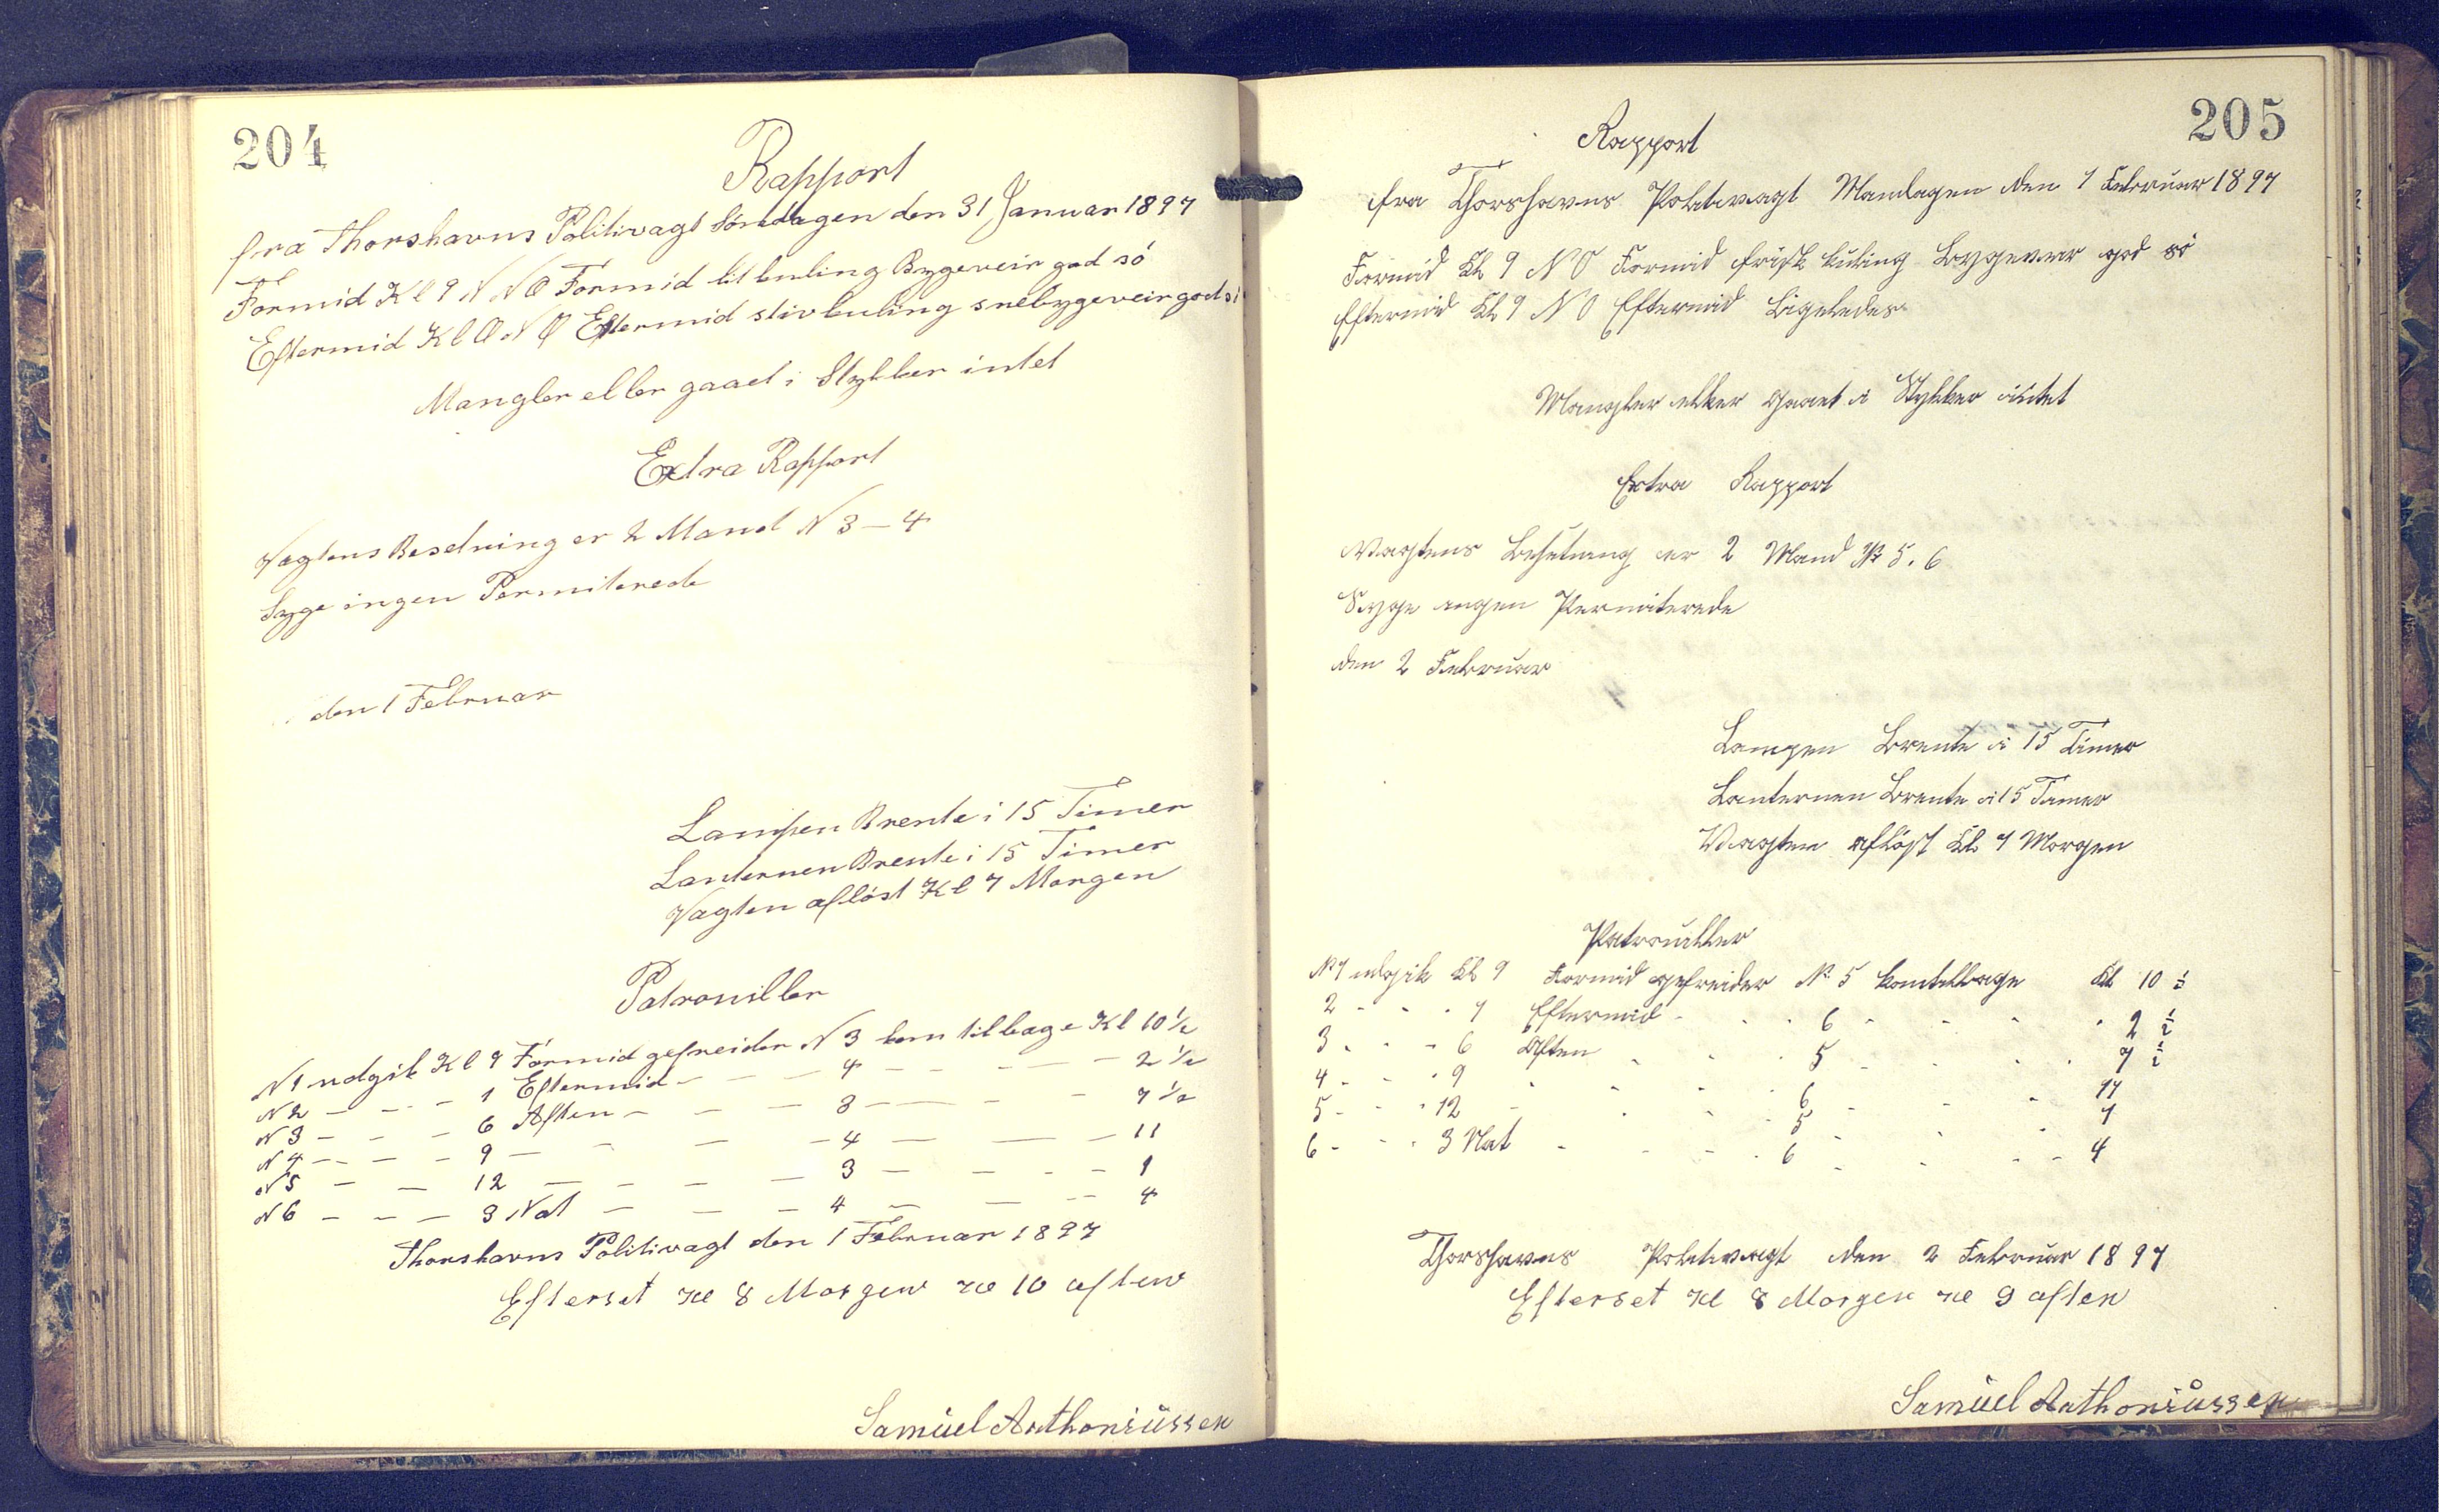 204
Rapport
fra Thorshavns Politivagt Söndagen den 31 Januar 1897
Formid Kl 9 N N O Formid lit kuling Bygeveir god sö
Eftermid Kl O N O Eftermid stiv kuling snebygeveir god sö
Mangler eller gaaet i Stykker intet
Extra Rapport
Vagtens Besetning er 2 Mand N 3 – 4
Syge ingen Permiterede
den 1 Februar
Lampen Brente i 15 Timer
Lanternen Brente i 15 Timer
Vagten aflöst Kl 7 Morgen
Patrouiller
N 1 udgik Kl 9 Formid gefreider N 3 kom tilbage Kl 10 1/2
N 2 – – – 1 Eftermid – – – 4 – – – – 2 1/2
N 3 – – – 6 Aften – – – 3 – – – – 7 1/2
N 4 – – – 9 – – – – 4 – – – 11
N 5 – – 12 – – – – 3 – – – – 1
N 6 – – – 3 Nat – – – 4 – – – 4
Thorshavns Politivagt den 1 Februar 1897
Efterset Kl 8 Morgen Kl 10 aften
Samüel Anthoniüssen
205
Rapport
fra Thorshavns Politivagt Mandagen den 1 Februar 1897
Formid Kl 9 N O Formid frisk kuling Bygever god sö
Eftermid Kl 9 N O Eftermid Ligeledes
Mangler eller Gaaet i Stykker intet
Extra Rapport
Vagtens Besetning er 2 Mand No 5. 6
Syge ingen Permiterede
den 2 Februar
Lampen Brente i 15 Timer
Lanternen Brente i 15 Timer
Vagten aflöst Kl 7 Morgen
Patrouiller
No 1 udgik Kl 9 Formid gefreider No 5 kom tilbage Kl 10 1/2
2 - - - 1 Eftermid - - - 6 - - - - 2 1/2
3 - - - 6 Aften - - - 5 - - - 7 1/2
4 - - - 9 - - - - 6 - - - 11
5 - - - 12 - - - - 5 - - - 1
6 - - - 3 Nat - - - - 6 - - - - 4
Thorshavns Politivagt den 2 Februar 1897
Efterset Kl 8 Morgen Kl 9 aften
Samüel Anthoniüssen